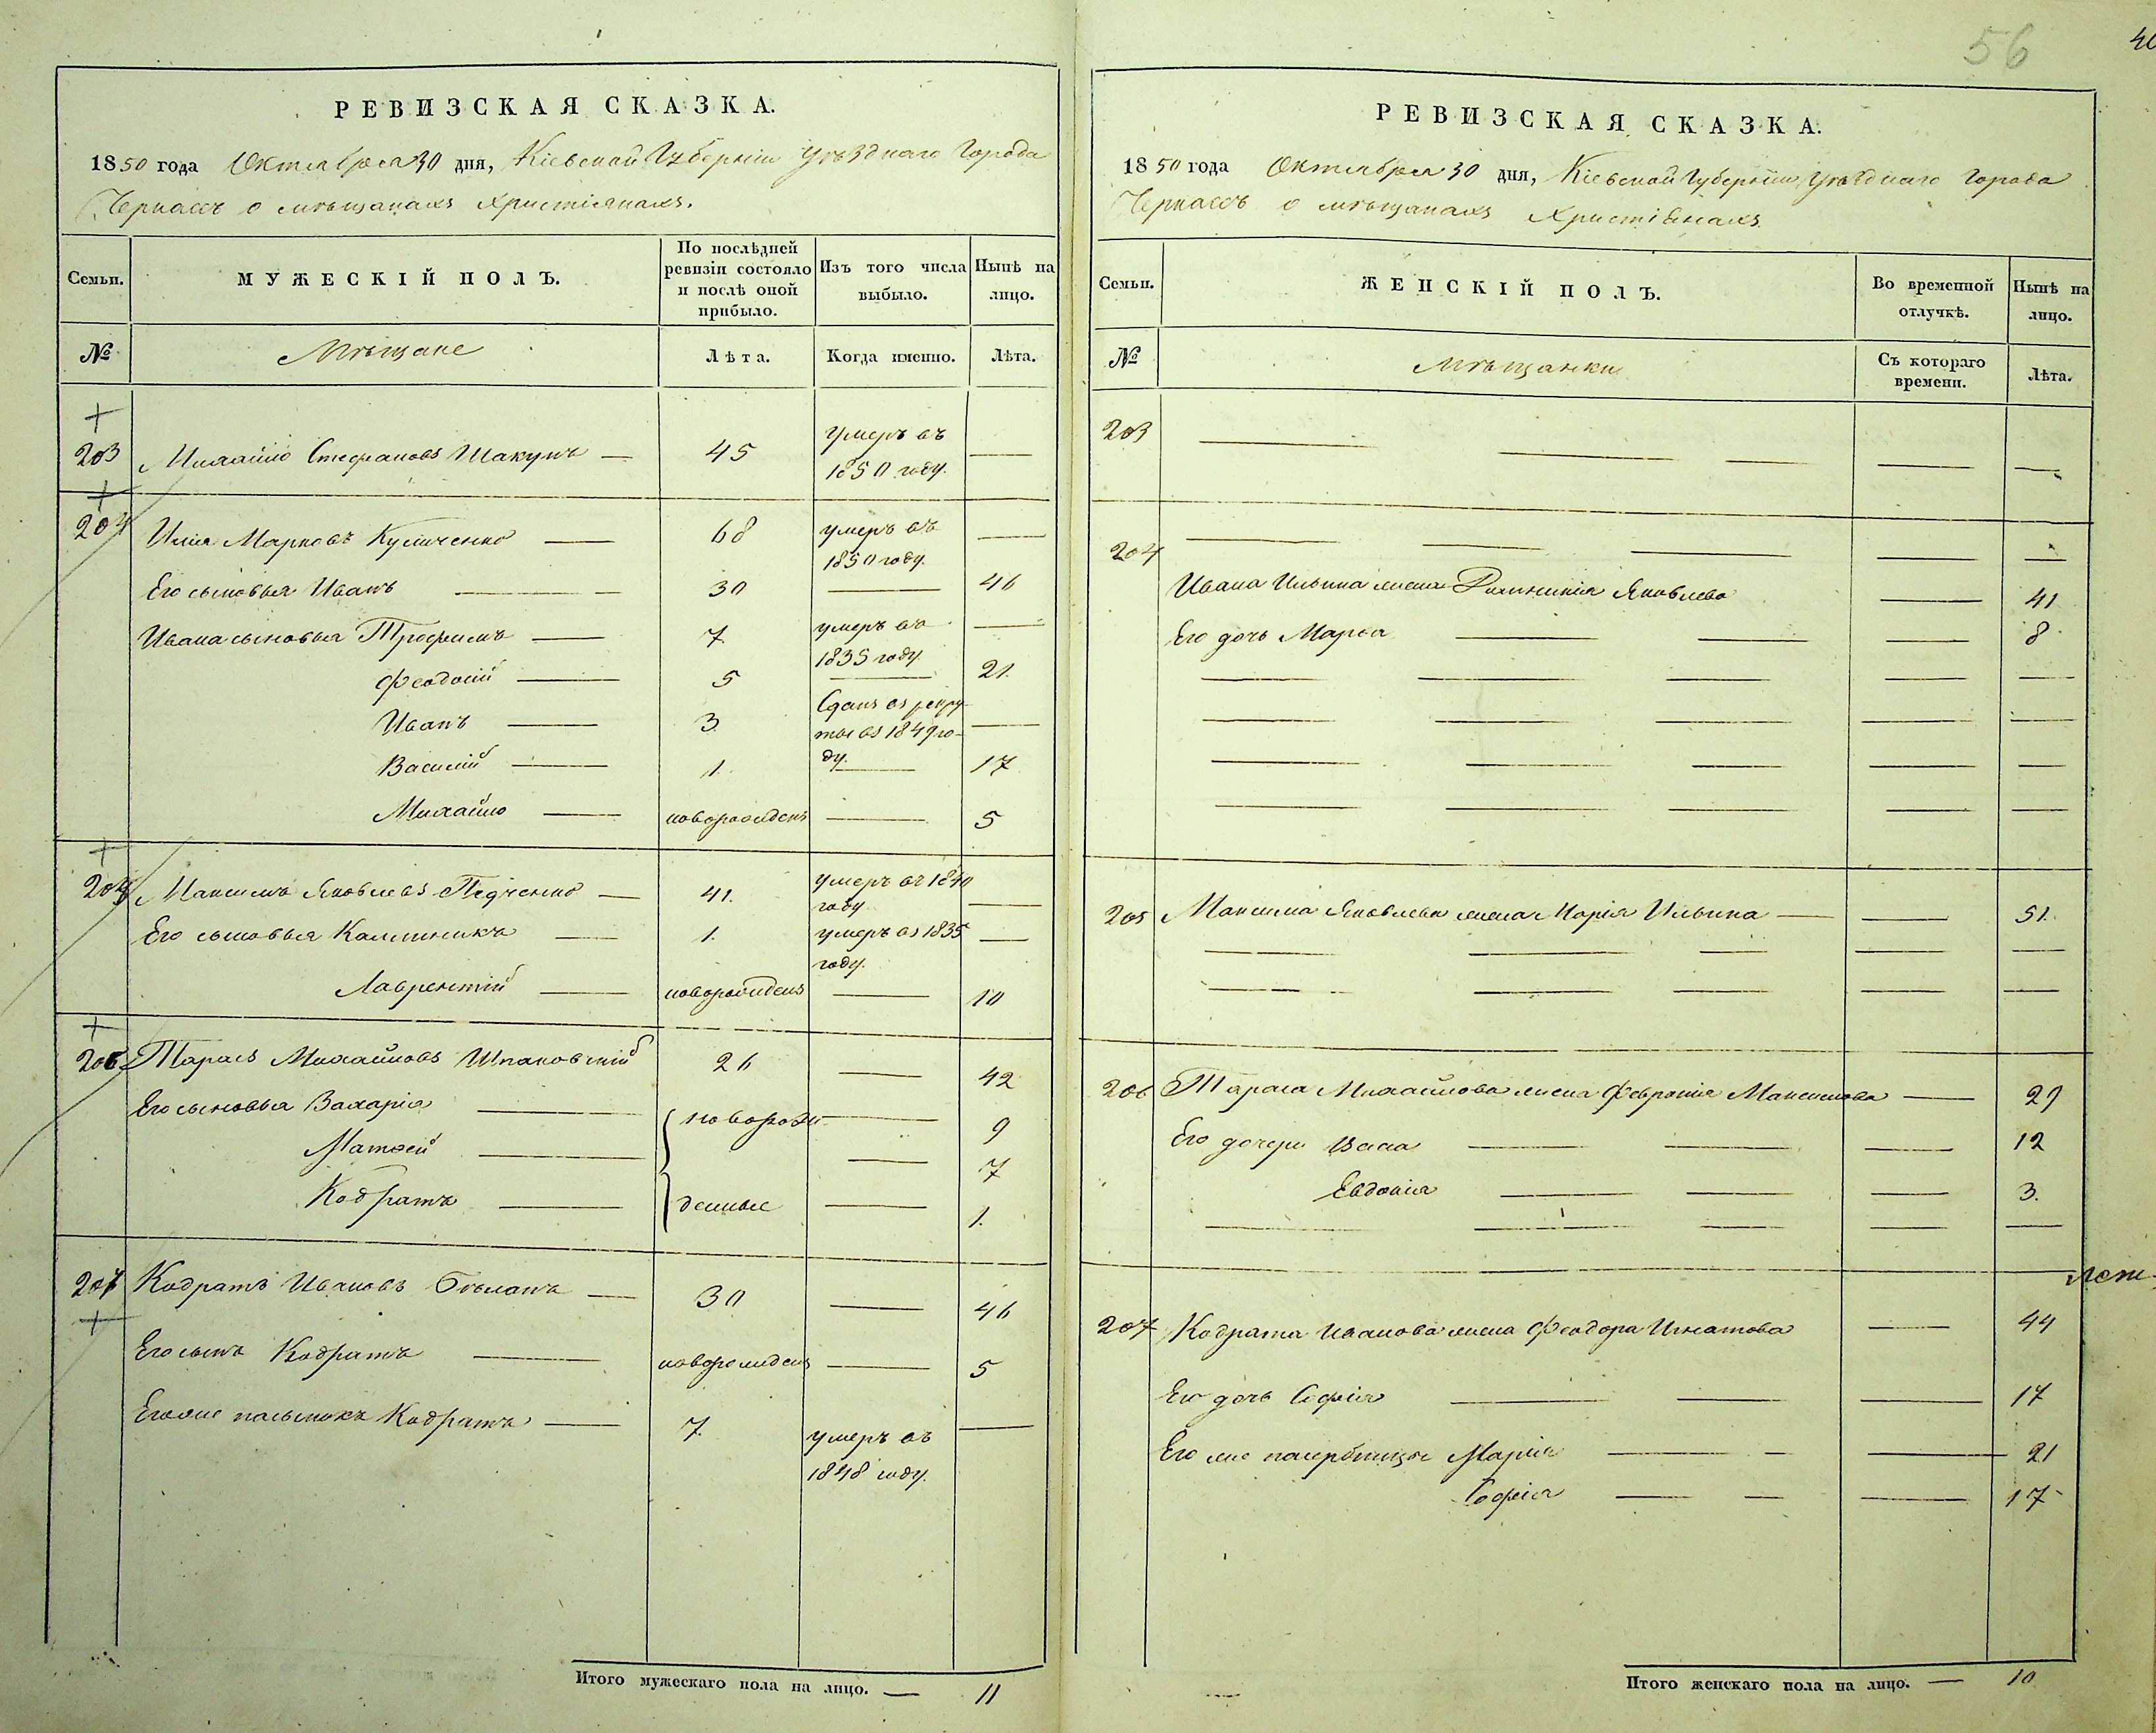 56
РЕВИЗСКАЯ СКАЗКА.
1850 года Октября 30 дня, Кіевской Губерніи Уѣзднаго Города
Черкасъ о мѣщанахъ Христіянахъ.
Семьи.
МУЖЕСКІЙ ПОЛЪ.
По послѣдней ревизіи состояло и послѣ оной прибыло.
Изъ того числа выбыло.
Нынѣ на лицо.
№
Мѣщане
Лѣта.
Когда именно.
Лѣта.
203 Михайло Стефановъ Шакунъ — 45 умеръ въ 1850 году. —
204 Илія Марковъ Куличенко — 68 умеръ въ 1850 году. —
Его сыновья Иванъ — 30 — 46
Ивана сыновья Трофимъ — 7. умеръ въ 1835 году —
Феодосій — 5 — 21.
Иванъ — 3. Сданъ въ рекруты въ 1849 году. —
Василій — 1. — 17
Михайло — новорожденъ — 5
205 Максимъ Яковлевъ Педченко — 41. умеръ въ 1840 году —
Его сыновья Калиникъ — 1. умеръ въ 1835 году. —
Лаврентій — новорожденъ — 10
206 Тарасъ Михайловъ Шпаковскій 26 — 42
Его сыновья Захарія — новорож — 9
Матвей — — 7
Кодратъ — денные — 1.
207 Кодратъ Ивановъ Бѣланъ — 30 — 46
Его сынъ Кодратъ — новорожденъ — 5
Его же пасынокъ Кодратъ — 7. умеръ въ 1848 году. —
Итого мужескаго пола на лицо. — 11
РЕВИЗСКАЯ СКАЗКА.
1850 года Октября 30 дня, Кіевской Губерніи Уѣзднаго Города
Черкасъ о мѣщанахъ Христіянахъ.
Семьи.
ЖЕНСКІЙ ПОЛЪ.
Во временной отлучкѣ.
Нынѣ на лицо.
№
Мѣщанки
Съ котораго времени.
Лѣта.
203 — — — — —
204 — — — — —
Ивана Ильина жена Яковлева — 41
Его дочь Марья — — — 8.
205 Максима Яковлева жена Марія Ильина — — 51.
206 Тараса Михайлова жена Февронія Максимова — 29
Его дочери Васса — — — 12
Евдокія — — — 3.
207 Кодрата Иванова жена Феодора Игнатова — 44
Его дочь Софія — — — 17
Его же падчерицы Марія — — — 21
Софія — — — 17
Итого женскаго пола на лицо. — 10